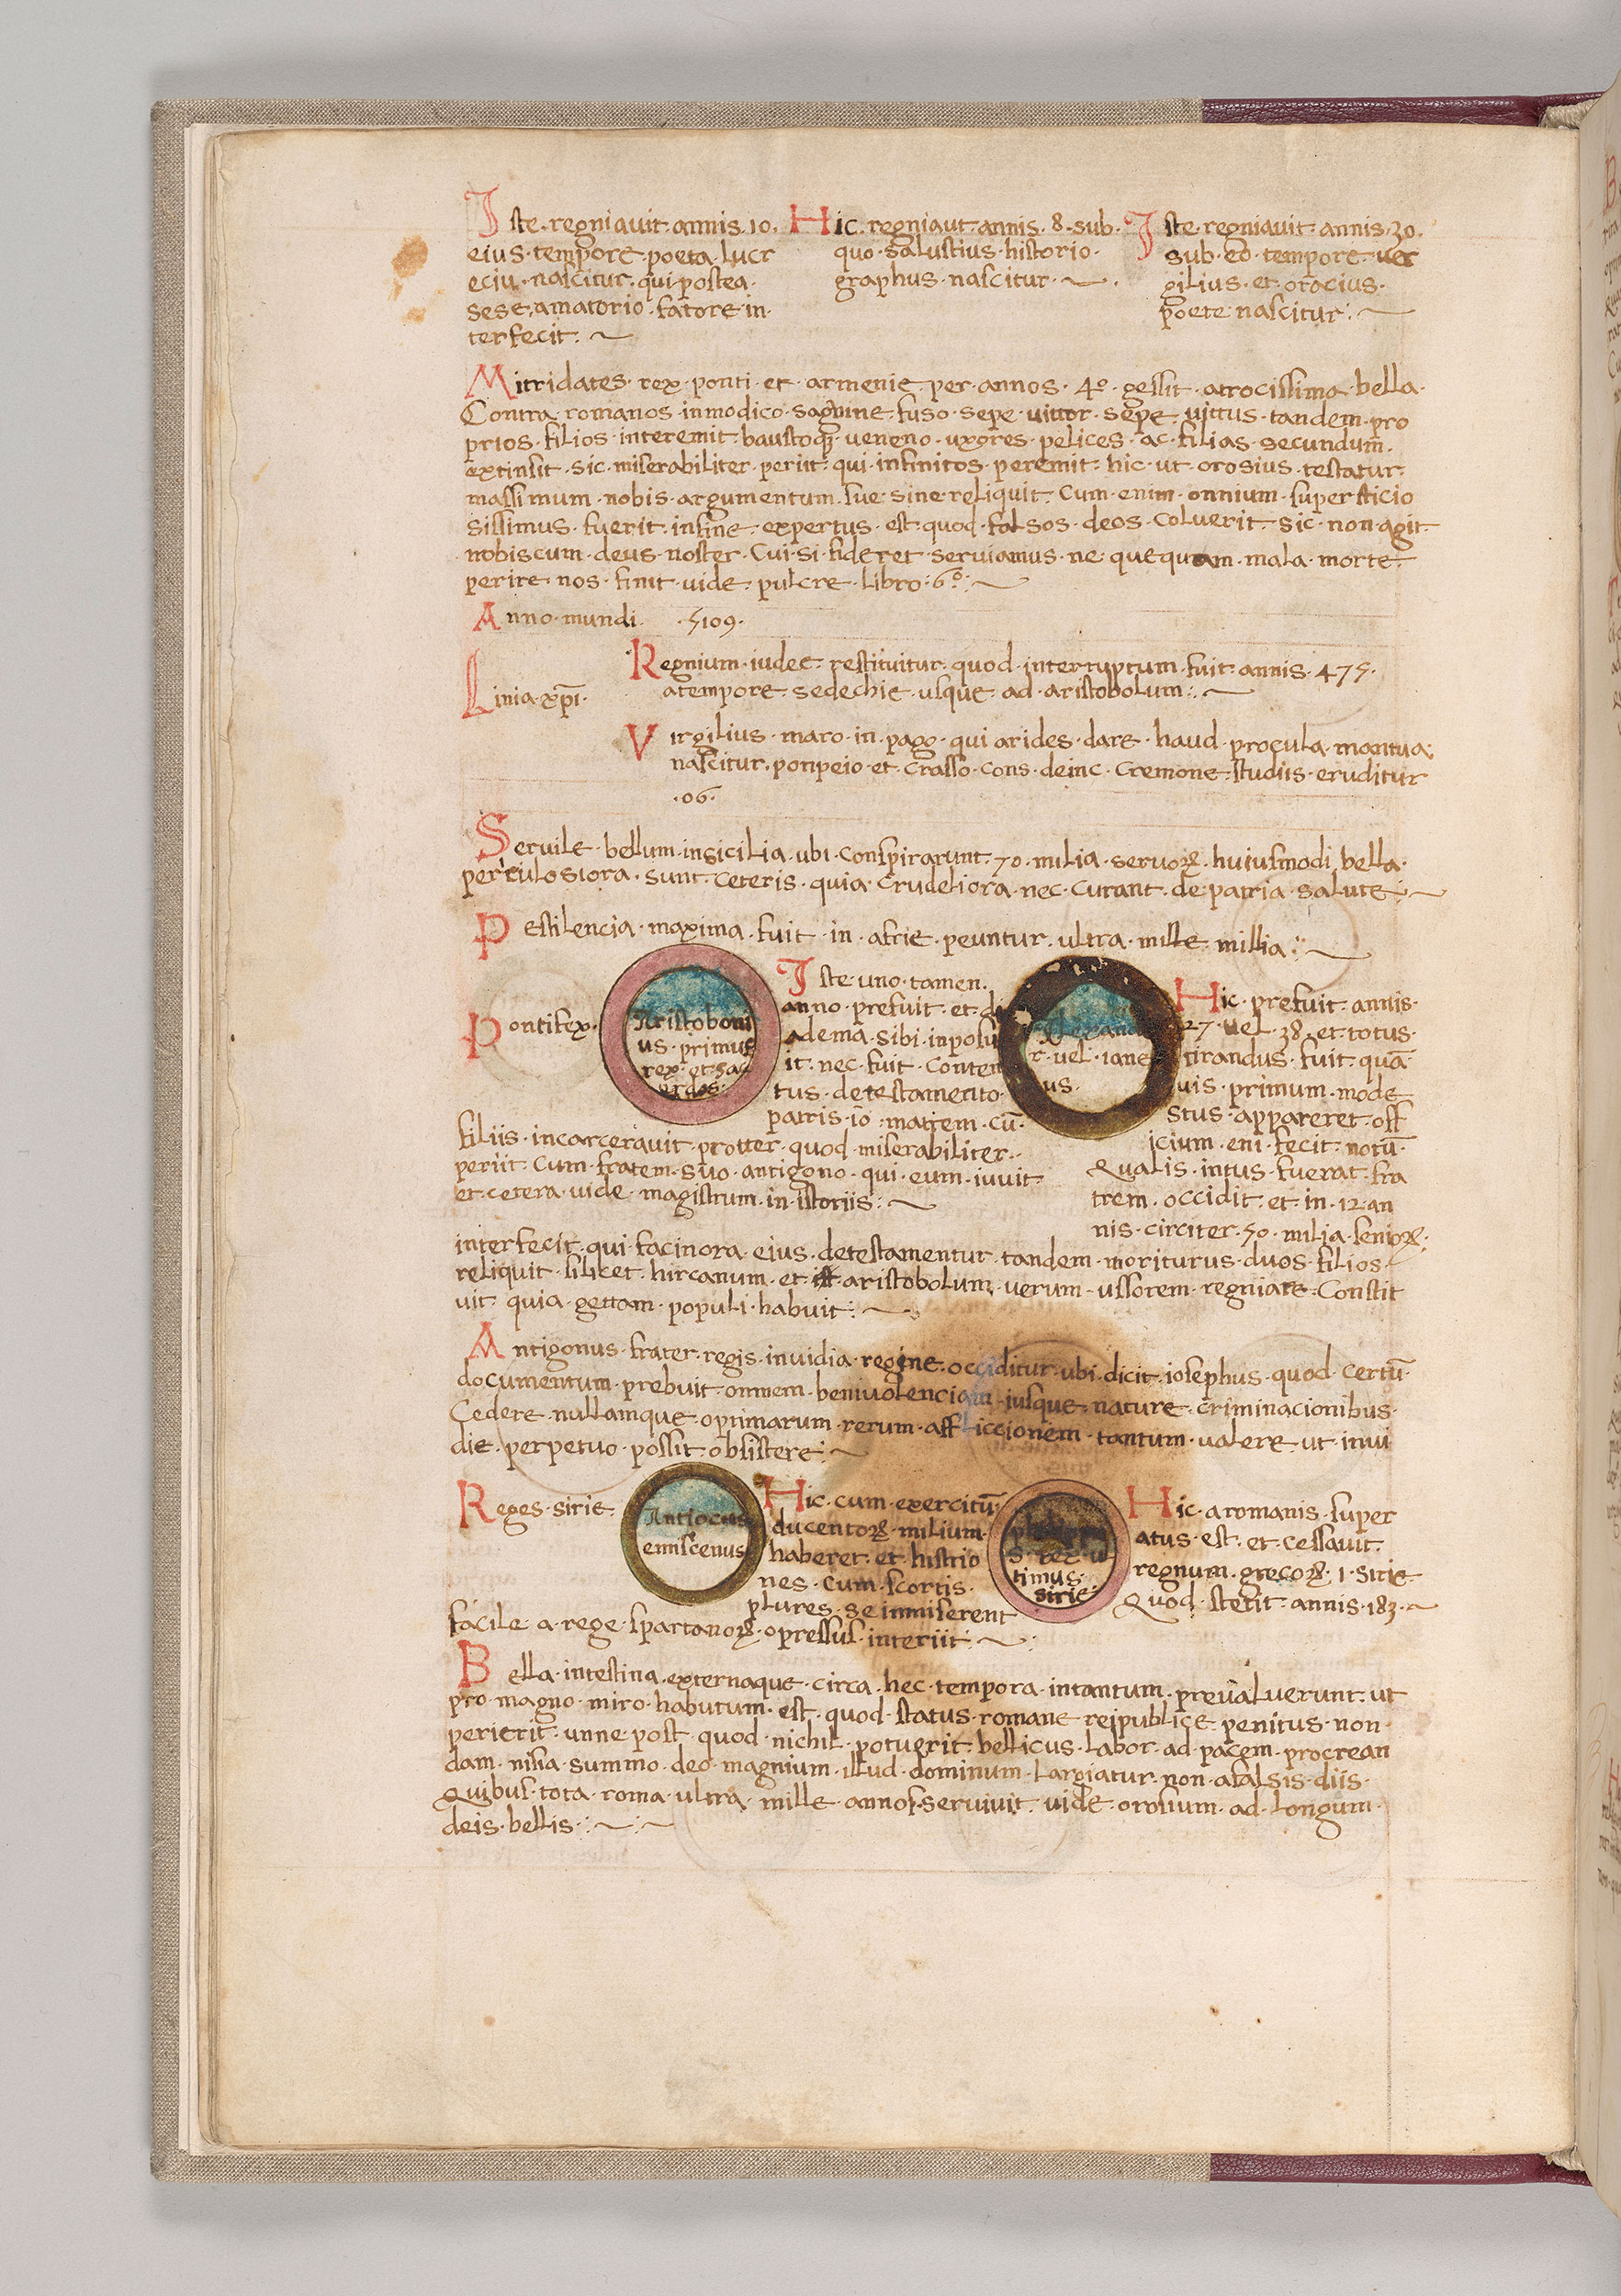 Iste · regniauit · annis · 10 ·
eius · tempore · poeta · lucr
eciu · nascitur · qui · postea ·
sese · amatorio · fatore · in ·
terfecit ·
Hic · regniaut · annis · 8 · sub ·
quo · salustius · historio ·
graphus · nascitur ·
Iste · regniauit · annis · 30 ·
sub · eo · tempore · uer
gilius · et · orocius ·
poete · nascitur ·
Mitridates · rex · ponti · et · armenie · per · annos · 4º · gessit · atrocissima · bella ·
Contra · romanos · inmodico · sagnine · fuso · sepe · uittor · sepe · uittus · tandem · pro
prios · filios · interemit · baustoqȝ · ueneno · uxores · pelices · ac · filias · secundum̄ ·
extinsit · sic · miserabiliter · periit · qui · infinitos · peremit · hic · ut · orosius · testatur ·
massimum · nobis · argumentum · sue · sine · reliquit · Cum · enim · onnium · supersticio
sissimus · fuerit · infine · expertus · est · quod · falsos · deos · Coluerit · sic · non · agit ·
nobiscum · deus · noster · Cui · si · fideret · seruiamus · ne · quequam · mala · morte ·
perire · nos · sinit · uide · pulcre · libro · 6º ·
Anno · mundi · 5109 ·
Linia · xp̄i ·
Regnium · iudee · restituitur · quod · interruptum · fuit · annis · 475 ·
atempore · sedechie · usque · ad · aristobolum ·
Virgilius · maro · in · pago · qui arides · dare · haud · procula · mantua ·
nascitur · ponpeio · et · crasso · cons · deinc · Cremone · studiis · eruditur
· 06 ·
Seruile · bellum · insicilia · ubi · Conspirarunt · 70 · milia · seruoꝝ · huiusmodi · bella ·
periculosiora · sunt · ceteris · quia · crudeliora · nec · Curant · de · patria · salute ·
Pestilencia · maxima · fuit · in · afrie · peuntur · ultra · mille · millia ·
Pontifex ·
Aristoboni
us · primus
rex · et · sac
erdos ·
Iste · uno · tamen ·
anno · prefuit · et · di
adema · sibi · inposu
it · nec · fuit · Conten
tus · detestamento ·
patris · iō · matrem · cū ·
filiis · incarcerauit · protter · quod · miserabiliter ·
periit · Cum · fratem · suo · antigono · qui · eum · iuuit ·
et · cetera · uide · magistrum · in · istoriis ·
r · uel · iane
us ·
Hic · prefuit · annis ·
27 · uel · 38 · et · totus ·
tirandus · fuit · quā
uis · primum · mode
stus · appareret · off
icium · eni · fecit · notū ·
Qualis · intus · fuerat · fra
trem · occidit · et · in · 12 · an
nis · circiter · 50 · milia · senioꝝ ·
interfecit · qui · facinora · eius · detestamentur · tandem · moriturus · duos · filios ·
reliquit · silicet · hircanum · et · aristobolum · uerum · ussorem · regniare · Constit
uit · quia · gettam · populi · habuit ·
Antigonus · frater · regis · inuidia · regine · occiditur · ubi · dicit · iosephus · quod · certū ·
documentum · prebuit · omnem · beniuolenciam · iusque · nature · criminacionibus ·
Cedere · nullamque · optimarum · rerum · affliccionem · tantum · ualere · ut · inui
die · perpetuo · possit · obsistere ·
Reges · sirie ·
Antiocus
emiscenus
Hic · cum · exercitū ·
ducentoꝝ · milium ·
haberet · et · histrio
nes · cum · scortis ·
plures · se · inmiserent
facile · a · rege · spartanoꝝ · opressus · interiit ·
s · rex · ul
timus ·
sirie ·
Hic · aromanis · super
atus · est · et · cessauit ·
regnum · grecoꝝ · 1 · sirie ·
Quod · stetit · annis · 183 ·
Bella · intestina · externaque · circa · hec · tempora · intantum · preualuerunt · ut
pro · magno · miro · habutum · est · quod · status · romane · reipublice · penitus · non ·
perierit · unne · post · quod · nichil · potuerit · bellicus · labor · ad · pacem · procrean
dam · nisia · summo · deo · magnium · illud · dominum · largiatur · non · afalsis · diis ·
Quibus · tota · roma · ultra · mille · annos · seruiuit · uide · orosium · ad · longum ·
deis · bellis ·